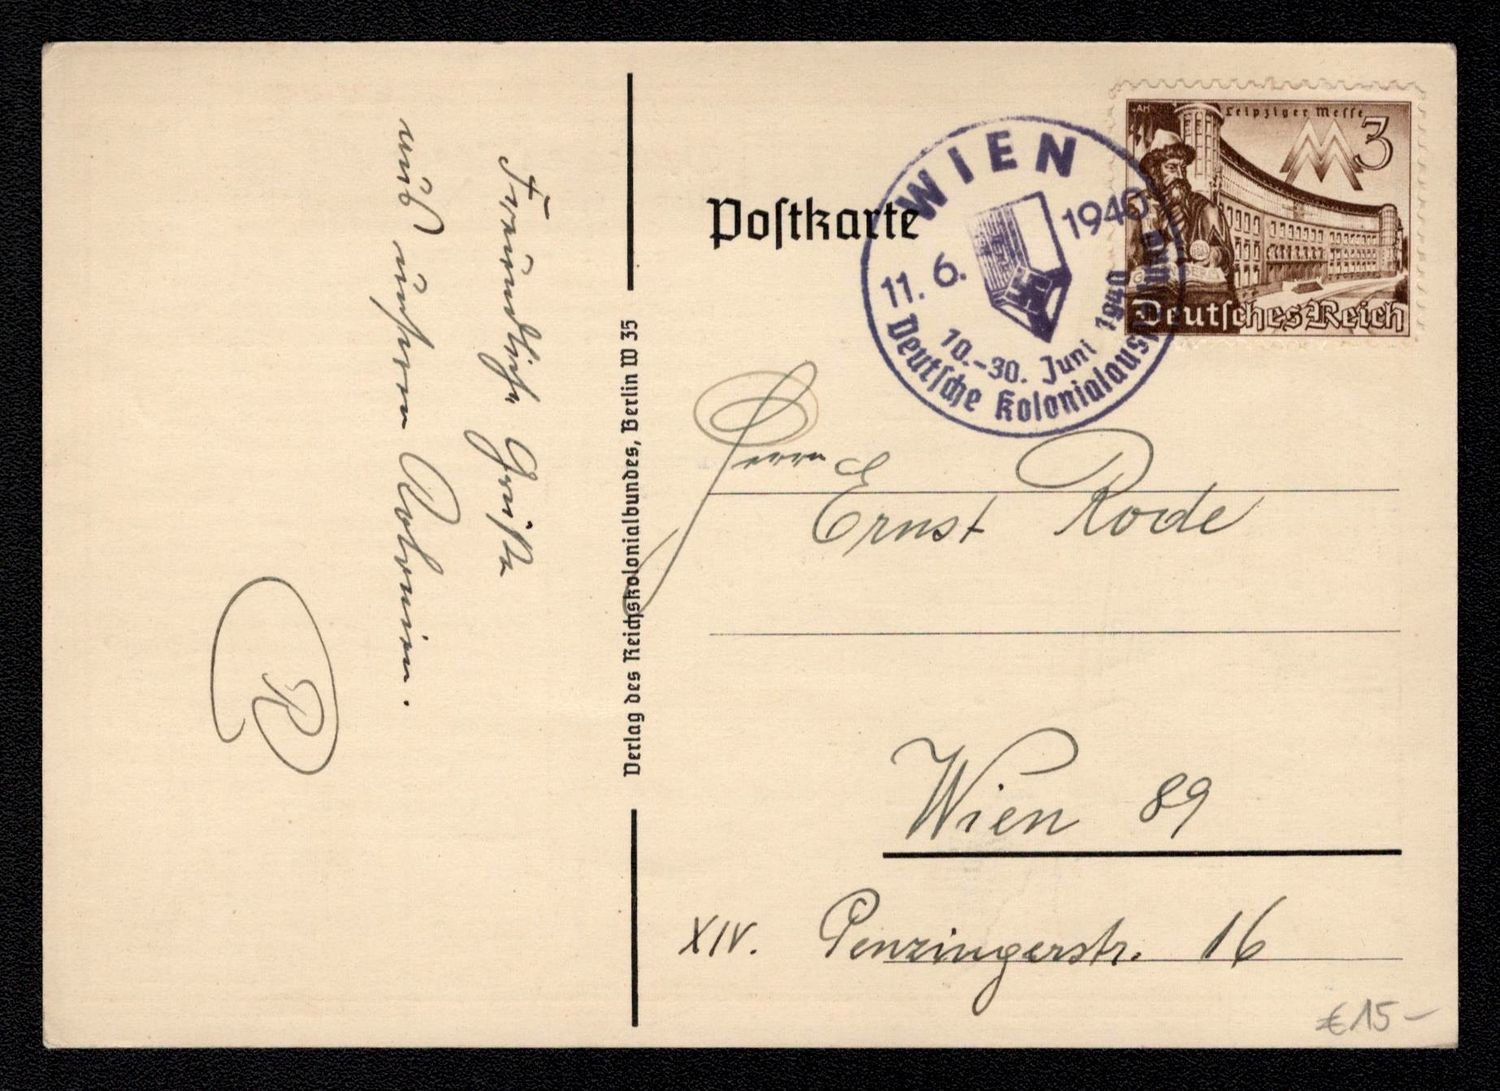 Freundliche Grüße
aus unseren
R
Verlag des Reichskolonialbundes, Berlin W 35
Postkarte
WIEN
11. 6. 1940
10.-30. Juni 1940
Deutsche Kolonialausstellung
Leipziger Messe
3
Deutsches Reich
Herrn
Ernst Rode
Wien 89
XIV. Penzingerstr. 16
€ 15-